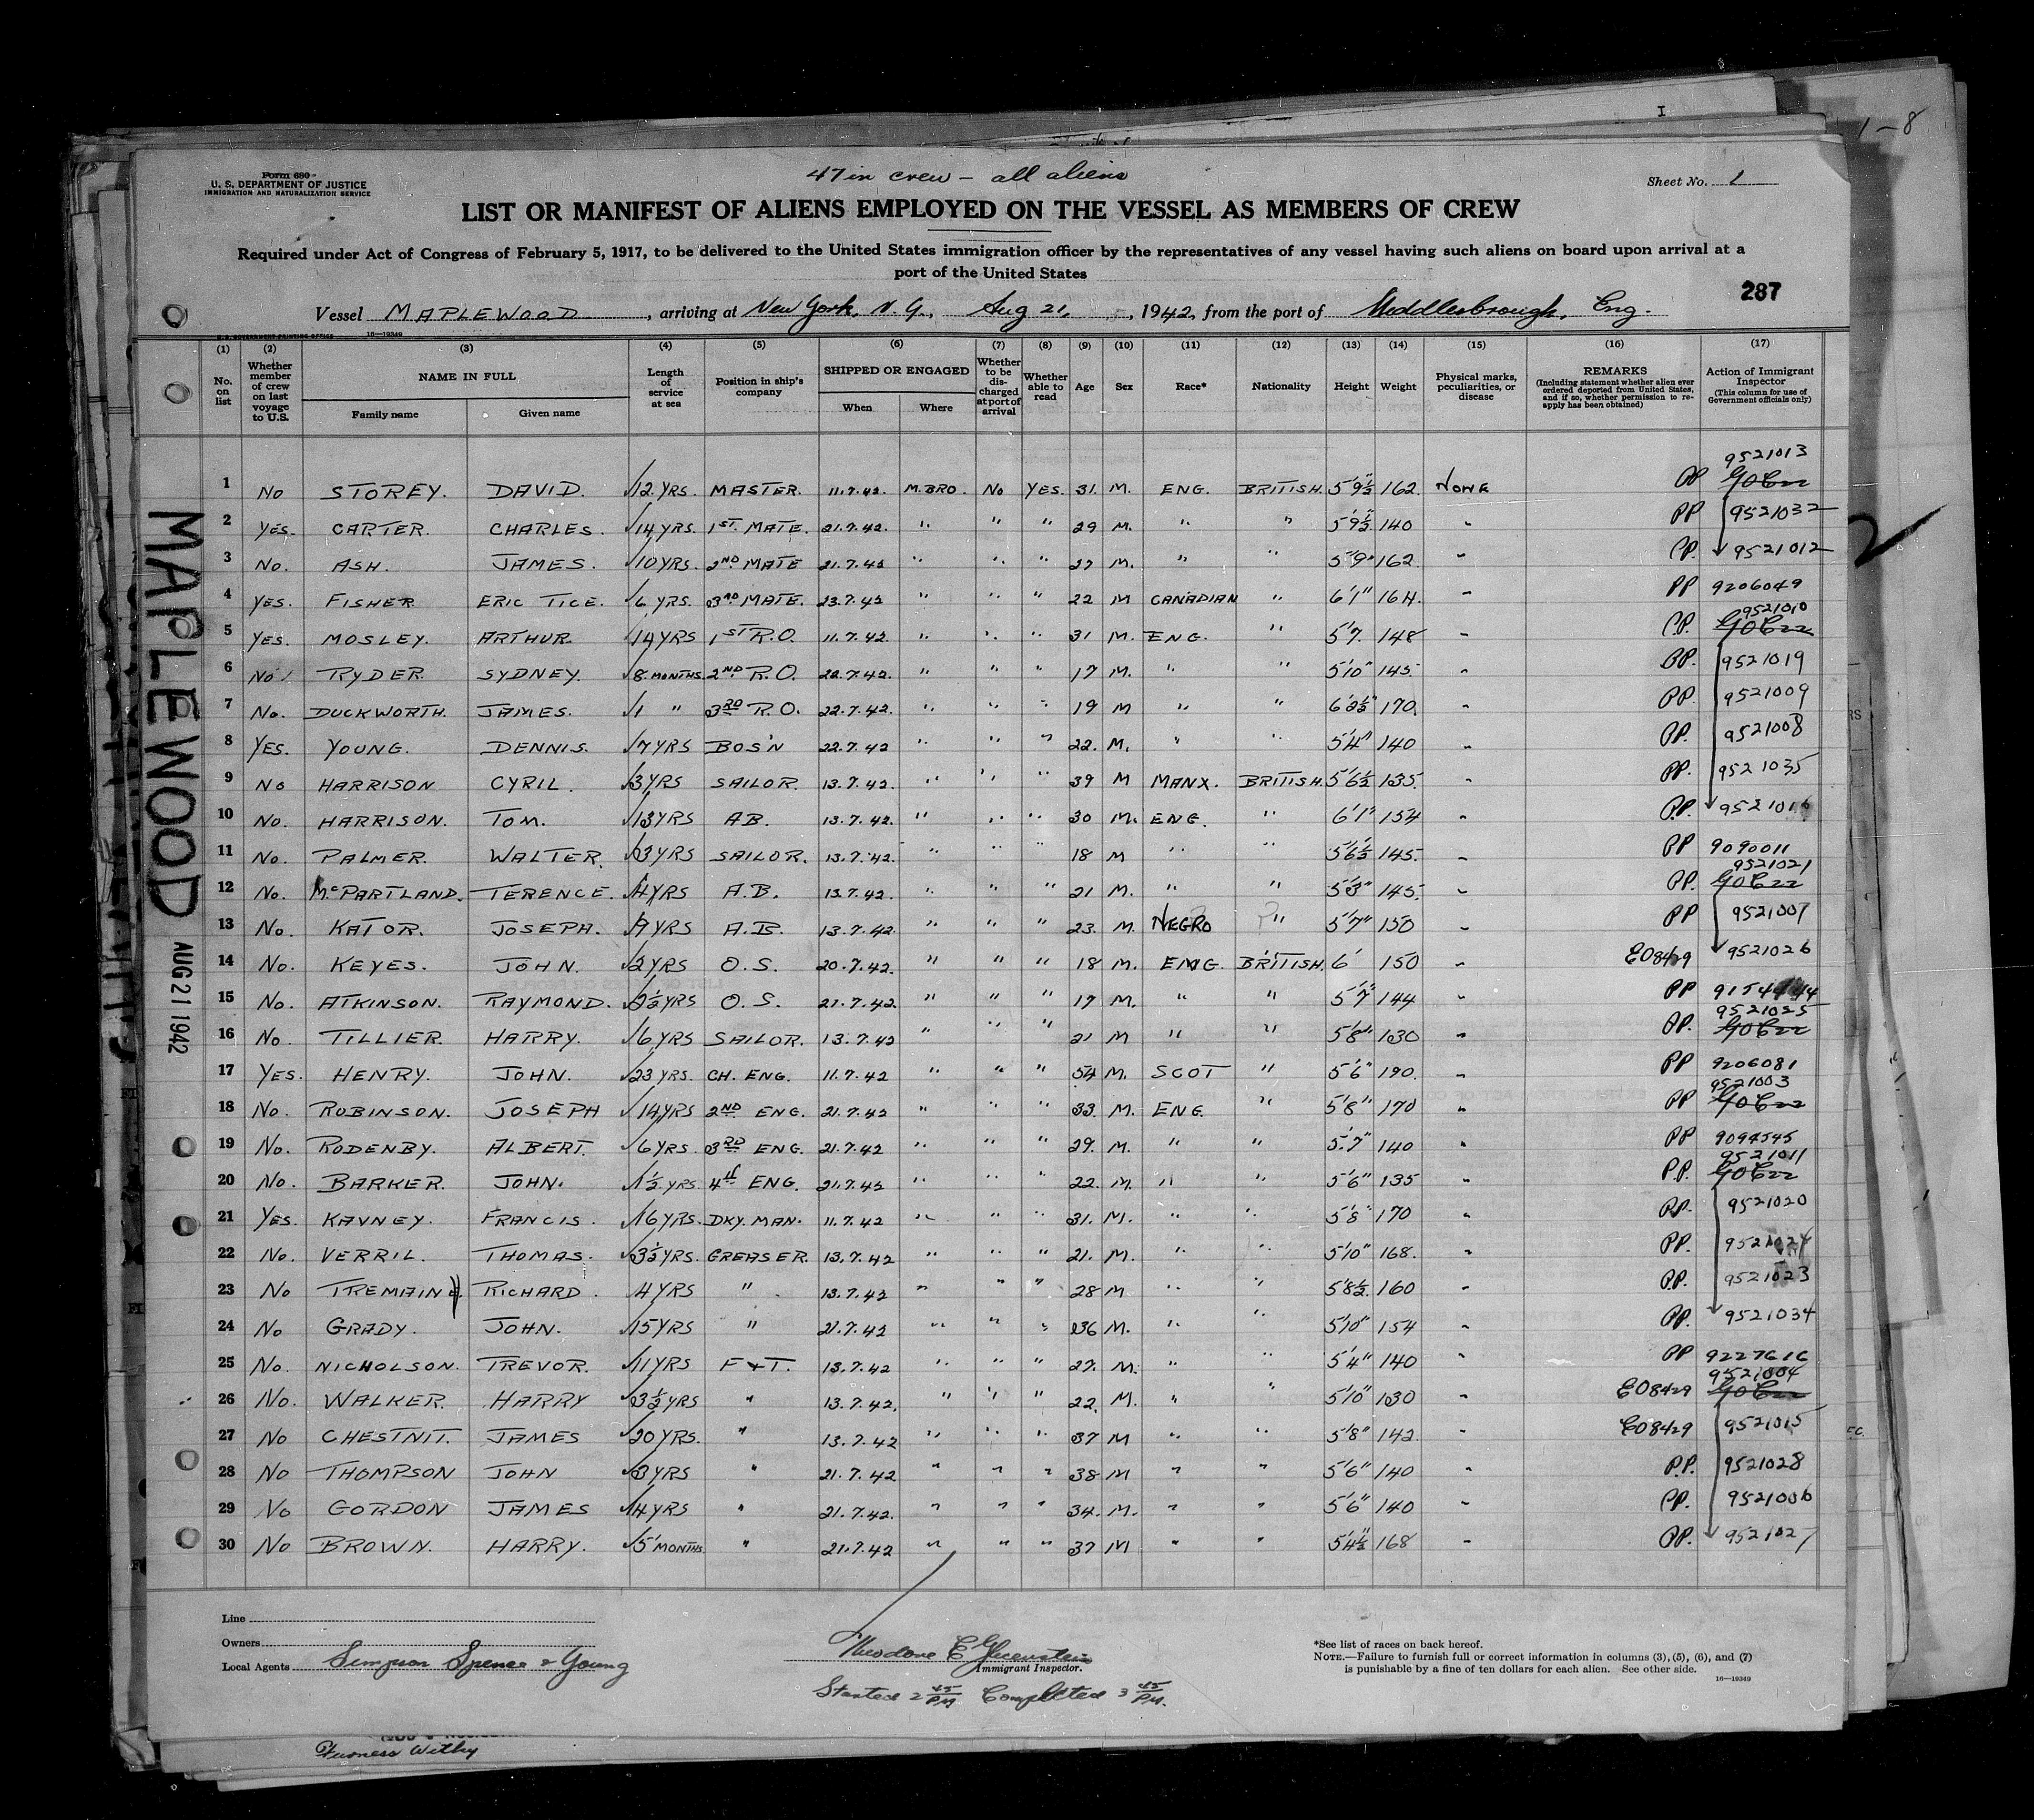 I
1-8
Form 680
U. S. DEPARTMENT OF JUSTICE
IMMIGRATION AND NATURALIZATION SERVICE
47 in crew - all aliens
Sheet No. 1
LIST OR MANIFEST OF ALIENS EMPLOYED ON THE VESSEL AS MEMBERS OF CREW
Required under Act of Congress of February 5, 1917, to be delivered to the United States immigration officer by the representatives of any vessel having such aliens on board upon arrival at a
port of the United States
287
Vessel MAPLEWOOD, arriving at New York, N.Y., Aug 21, 1942, from the port of Middlesbrough, Eng.
U. S. GOVERNMENT PRINTING OFFICE 16—19349
(1) (2) (3) (4) (5) (6) (7) (8) (9) (10) (11) (12) (13) (14) (15) (16) (17)
No. on list | Whether member of crew on last voyage to U.S. | NAME IN FULL | Family name | Given name | Length of service at sea | Position in ship's company | SHIPPED OR ENGAGED | When | Where | Whether to be discharged at port of arrival | Whether able to read | Age | Sex | Race* | Nationality | Height | Weight | Physical marks, peculiarities, or disease | REMARKS (Including statement whether alien ever ordered deported from United States, and if so, whether permission to reapply has been obtained) | Action of Immigrant Inspector (This column for use of Government officials only)
9521013
1 No STOREY. DAVID. 12 YRS. MASTER. 11.7.42. M.BRO. No YES. 31. M. ENG. BRITISH. 5'9½" 162. NONE PP
2 YES. CARTER. CHARLES. 14 YRS. 1ST. MATE. 21.7.42. " " " 29 M. " " 5'9½" 140 " PP 9521032
3 No. ASH. JAMES. 10 YRS. 2ND MATE 21.7.42 " " " 27 M. " " 5'9" 162. " PP. 9521012
4 YES. FISHER ERIC TICE. 6 YRS. 3RD MATE. 23.7.42 " " " 22 M CANADIAN " 6'1" 164. " PP 9206049
9521010
5 YES. MOSLEY. ARTHUR. 14 YRS 1ST R.O. 11.7.42. " " " 31 M. ENG. " 5'7. 148 " PP.
6 No RYDER. SYDNEY. 8 MONTHS. 2ND R.O. 22.7.42. " " " 17 M. " " 5'10" 145. " PP. 9521019
7 No. DUCKWORTH. JAMES. 1 " 3RD R.O. 22.7.42. " " " 19 M " " 6'2½" 170. " PP. 9521009
8 YES. YOUNG. DENNIS. 7 YRS BOS'N 22.7.42 " " " 22. M. " " 5'4" 140 " PP. 9521008
9 No HARRISON CYRIL. 3 YRS SAILOR. 13.7.42. " " " 39 M MANX. BRITISH. 5'6½ 135. " PP. 9521035
10 No. HARRISON. TOM. 13 YRS AB. 13.7.42. " " " 30 M. ENG. " 6'1" 154 " PP. 9521016
11 No. PALMER. WALTER. 3 YRS SAILOR. 13.7.42. " " " 18 M " " 5'6½ 145. " PP 9090011
9521021
12 No. McPARTLAND. TERENCE. 4 YRS A.B. 13.7.42. " " " 21 M. " " 5'3" 145. " PP.
13 No. KATOR. JOSEPH. 7 YRS A.B. 13.7.42. " " " 23. M. NEGRO " 5'7" 150 " PP 9521007
14 No. KEYES. JOHN. 2 YRS O.S. 20.7.42. " " " 18 M. ENG. BRITISH. 6' 150 " EO8429 9521026
15 No. ATKINSON. RAYMOND. 2½ YRS O.S. 21.7.42. " " " 17 M. " " 5'7" 144 " PP
9521025
16 No TILLIER. HARRY. 6 YRS SAILOR. 13.7.42 " " " 21 M " " 5'8" 130 " PP.
17 YES. HENRY. JOHN. 23 YRS. CH. ENG. 11.7.42 " " " 54 M. SCOT " 5'6" 190. " PP 9206081
9521003
18 No. ROBINSON. JOSEPH 14 YRS 2ND ENG. 21.7.42 " " " 33. M. ENG. " 5'8" 170 " PP
19 No. RODENBY. ALBERT. 6 YRS. 3RD ENG. 21.7.42 " " " 29. M. " " 5'7" 140 " PP 9094545
9521011
20 No. BARKER. JOHN. 1½ YRS. 4th ENG. 21.7.42 " " " 22. M. " " 5'6" 135 " P.P.
21 YES. KAVNEY. FRANCIS. 16 YRS. DKY. MAN. 11.7.42 " " " 31. M. " " 5'8" 170 " PP. 9521020
22 No. VERRIL. THOMAS. 3½ YRS. GREASER. 13.7.42 " " " 21. M. " " 5'10" 168. " PP. 9521024
23 No TREMAIN RICHARD. 4 YRS " 13.7.42 " " " 28 M " " 5'8½. 160 " P.P. 9521023
24 No GRADY. JOHN. 15 YRS " 21.7.42 " " " 36 M. " " 5'10" 154 " PP. 9521034
25 No. NICHOLSON. TREVOR. 11 YRS F+T. 13.7.42 " " " 27. M. " " 5'4" 140 " PP 9227616
9521004
26 No. WALKER. HARRY 3½ YRS " 13.7.42. " " " 22. M. " " 5'10" 130 " EO8429
27 No CHESTNIT. JAMES 20 YRS. " 13.7.42 " " " 37 M " " 5'8" 142. " EO8429 9521015
28 No THOMPSON JOHN 3 YRS " 21.7.42 " " " 38 M " " 5'6" 140 " P.P. 9521028
29 No GORDON JAMES 4 YRS " 21.7.42. " " " 34. M. " " 5'6" 140 " PP. 9521006
30 No BROWN. HARRY. 5 MONTHS. " 21.7.42 " " " 37 M " " 5'4½" 168 " PP. 9521027
MAPLEWOOD
AUG 21 1942
Line
Owners
Local Agents Simpson Spence & Young
Theodore E
Immigrant Inspector.
Started 2 45 P.M. Completed 3 45 P.M.
*See list of races on back hereof.
NOTE.—Failure to furnish full or correct information in columns (3), (5), (6), and (7)
is punishable by a fine of ten dollars for each alien. See other side.
16—19349
Furness Withy